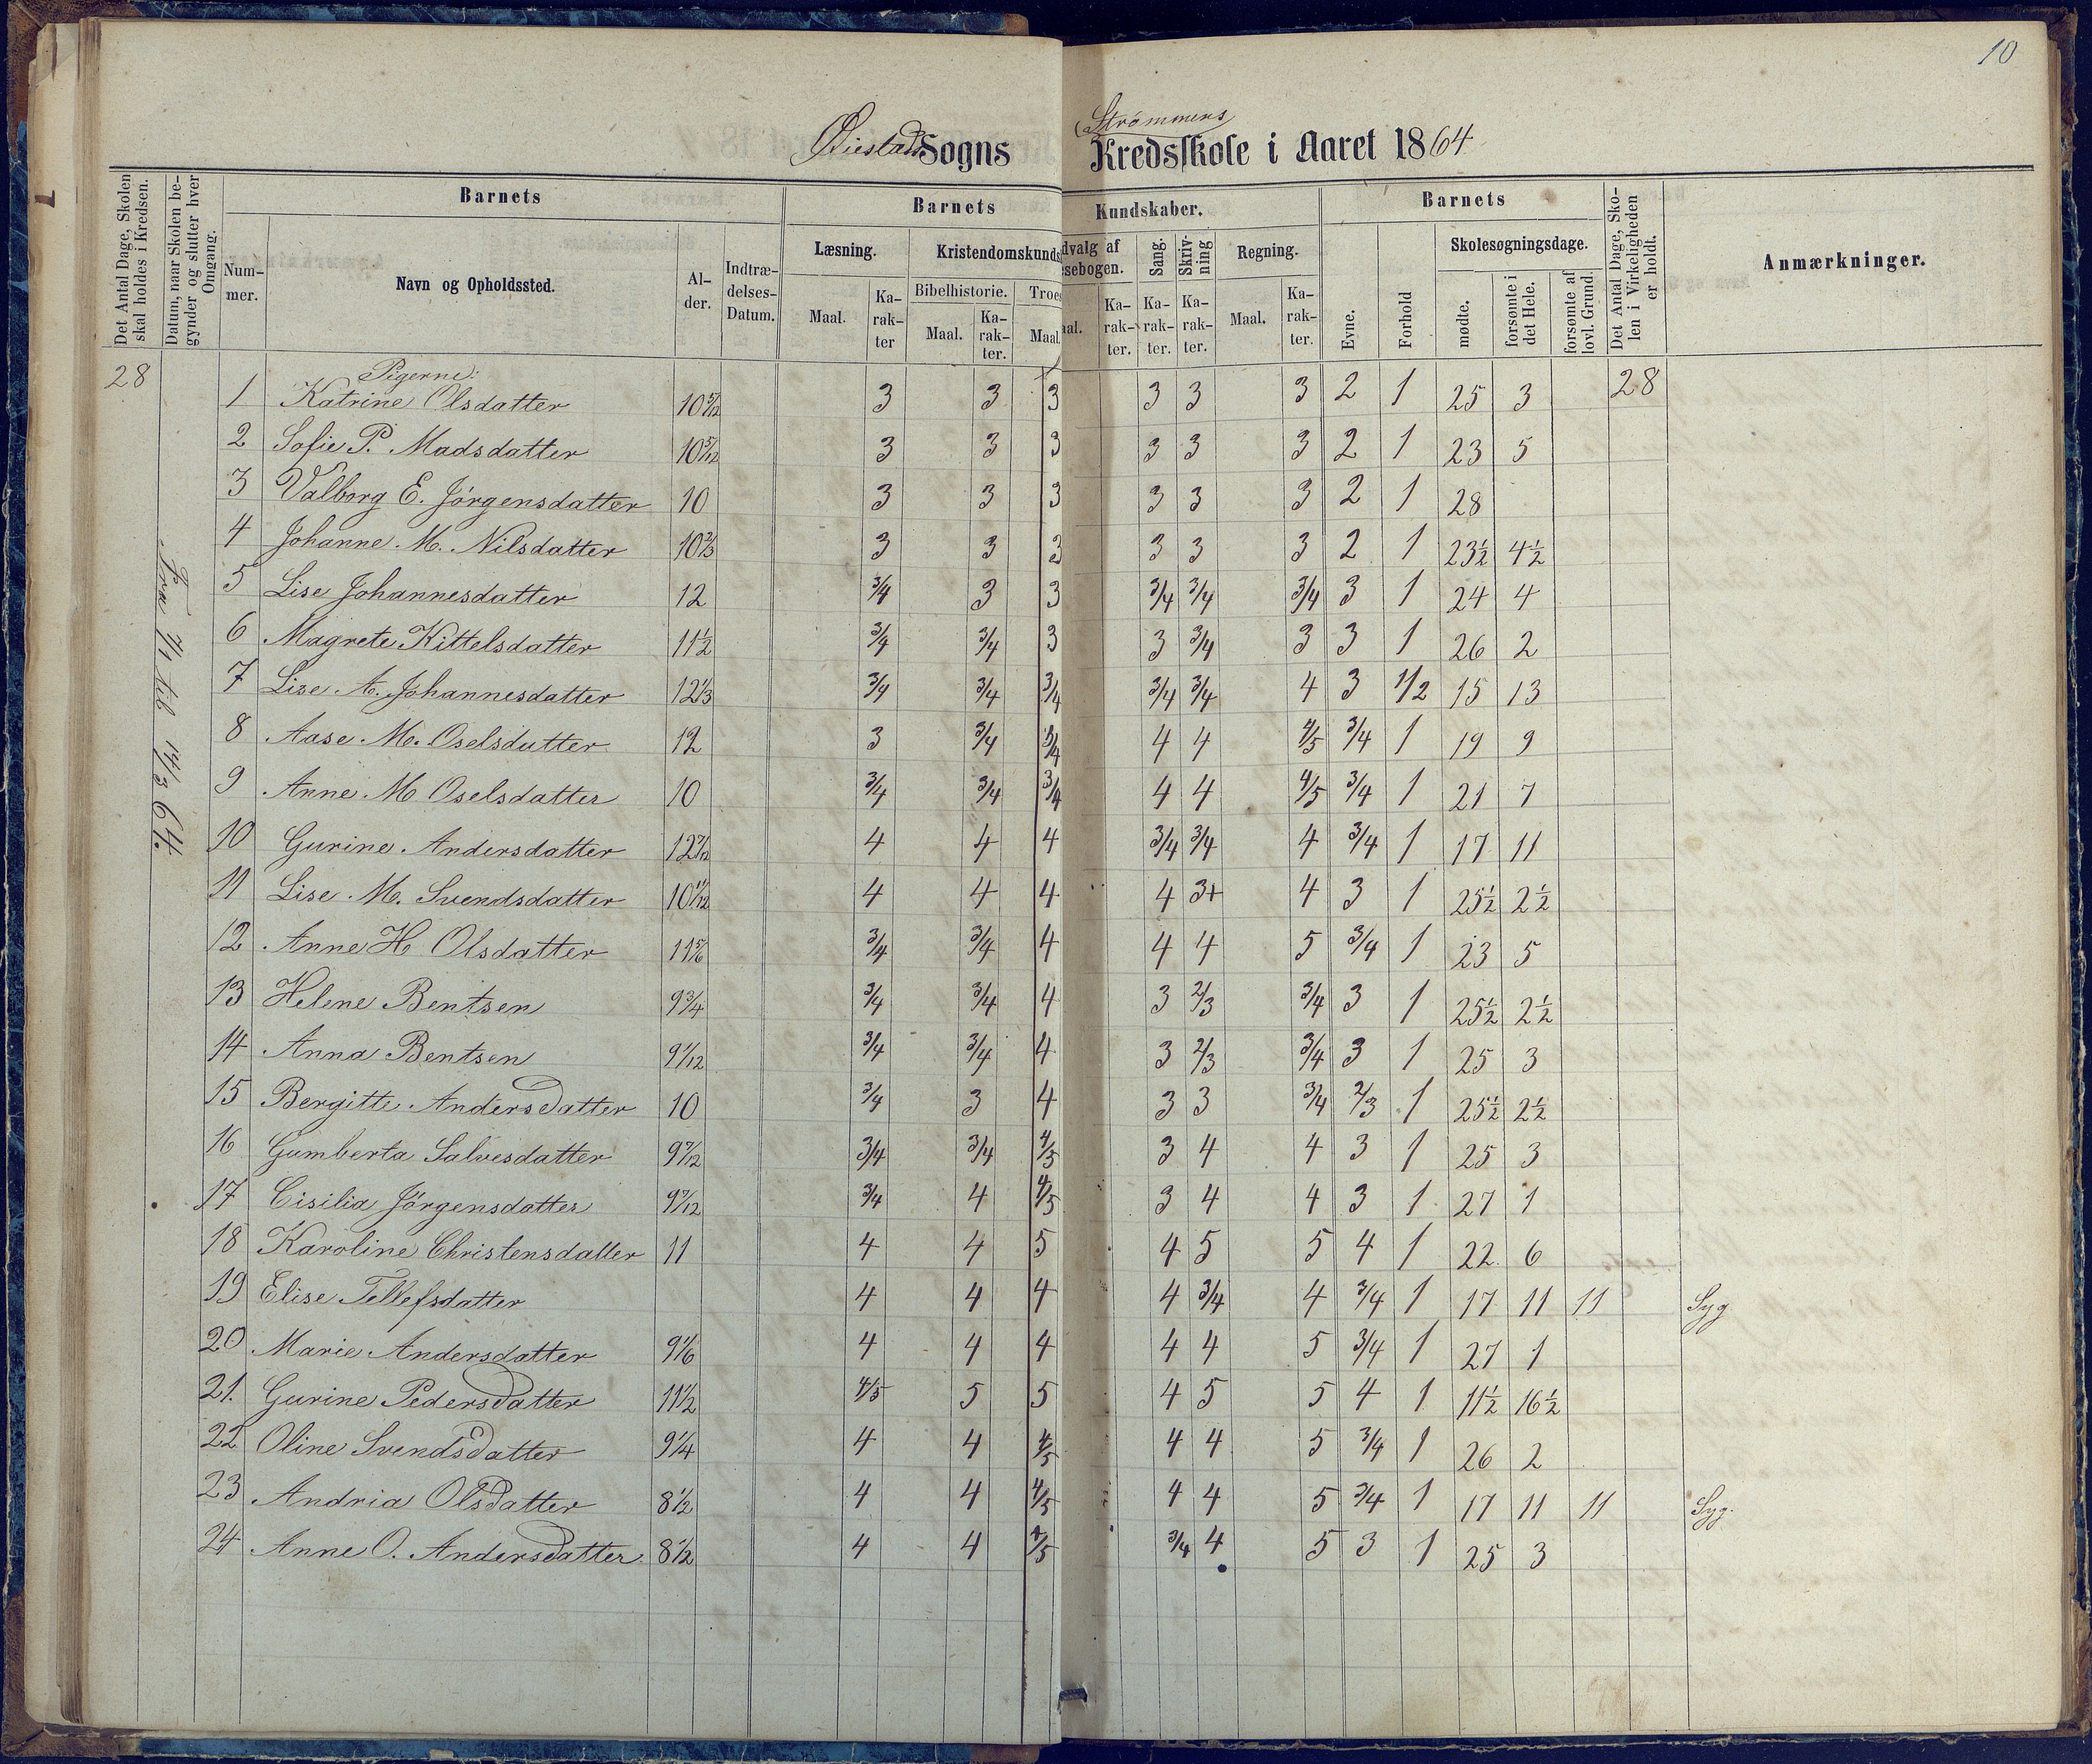 10
Øiestads Sogns Strømmens Kredsskole i Aaret 1864
Det Antal Dage, Skolen skal holdes i Kredsen.
Datum, naar Skolen begynder og slutter hver Omgang.
Barnets
Barnets
Kundskaber.
Barnets
Det Antal Dage, Skolen i Virkeligheden er holdt.
Anmærkninger.
Nummer.
Navn og Opholdssted.
Alder.
Indtrædelses-Datum.
Læsning.
Kristendomskunds
dvalg af
sebogen.
Sang.
Skrivning
Regning.
Evne.
Forhold
Skolesøgningsdage.
Maal.
Karakter
Bibelhistorie.
Troes
Maal.
Karakter.
Maal.
aal.
Karakter.
Karakter.
Karakter.
Maal.
Karakter.
mødte.
forsømte i det Hele.
forsømte af lovl. Grund.
28
Fra 7/1 til 14/3 64.
Pigerne:
1 Katrine Olsdatter 10 5/12 3 3 3 3 3 3 2 1 25 3 28
2 Sofie P. Madsdatter 10 5/12 3 3 3 3 3 3 2 1 23 5
3 Valborg E. Jørgensdatter 10 3 3 3 3 3 3 2 1 28
4 Johanne M. Nilsdatter 10 2/3 3 3 3 3 3 3 2 1 23½ 4½
5 Lise Johannesdatter 12 3/4 3 3 3/4 3/4 3/4 3 1 24 4
6 Magrete Kittelsdatter 11½ 3/4 3/4 3 3 3/4 3 3 1 26 2
7 Lise A. Johannesdatter 12 1/3 3/4 3/4 3/4 3/4 3/4 4 3 1/2 15 13
8 Aase M. Oselsdatter 12 3 3/4 3/4 4 4 4/5 3/4 1 19 9
9 Anne M Oselsdatter 10 3/4 3/4 3/4 4 4 4/5 3/4 1 21 7
10 Gurine Andersdatter 12 7/12 4 4 4 3/4 3/4 4 3/4 1 17 11
11 Lise M. Svendsdatter 10 11/12 4 4 4 4 3+ 4 3 1 25½ 2½
12 Anne H Olsdatter 11 5/6 3/4 3/4 4 4 4 5 3/4 1 23 5
13 Helene Bentsen 9 3/4 3/4 3/4 4 3 2/3 3/4 3 1 25½ 2½
14 Anna Bentsen 9 1/12 3/4 3/4 4 3 2/3 3/4 3 1 25 3
15 Bergitte Andersdatter 10 3/4 3 4 3 3 3/4 2/3 1 25½ 2½
16 Gumberta Salvesdatter 9 7/12 3/4 3/4 4/5 3 4 4 3 1 25 3
17 Cisilia Jørgensdatter 9 7/12 3/4 4 4/5 3 4 4 3 1 27 1
18 Karoline Christensdatter 11 4 4 5 4 5 5 4 1 22 6
19 Elise Tellefsdatter 4 4 4 4 3/4 4 3/4 1 17 11 11 Syg
20 Marie Andersdatter 9 1/6 4 4 4 4 4 5 3/4 1 27 1
21. Gurine Pedersdatter 11½ 4/5 5 5 4 5 5 4 1 11½ 16½
22 Oline Svendsdatter 9¼ 4 4 4/5 4 4 5 3/4 1 26 2
23 Andria Olsdatter 8½ 4 4 4/5 4 4 5 3/4 1 17 11 11 Syg.
24 Anne O. Andersdatter 8½ 4 4 4/5 3/4 4 5 3 1 25 3